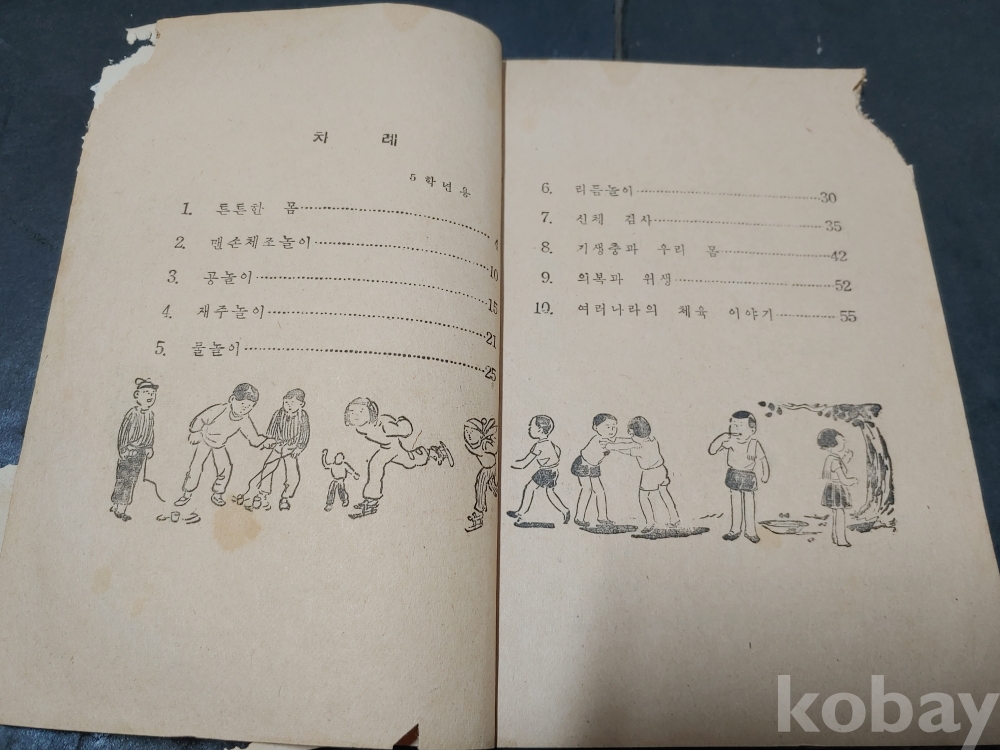 차 례
5학년용
1. 튼튼한 몸 4
2. 맨손체조놀이 10
3. 공놀이 15
4. 재주놀이 21
5. 물놀이 25
6. 리듬놀이 30
7. 신체 검사 35
8. 기생충과 우리 몸 42
9. 의복과 위생 52
10. 여러나라의 체육 이야기 55
kobay